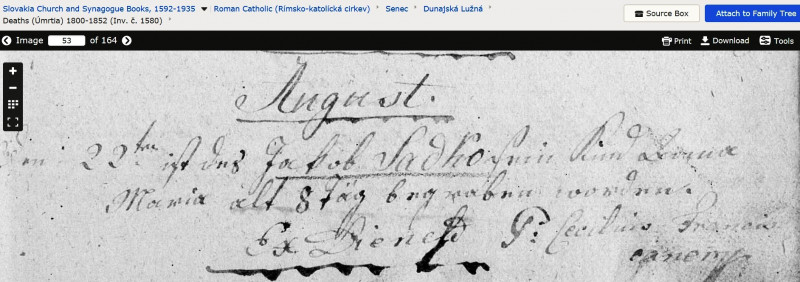 Slovakia Church and Synagogue Books, 1592-1935 ▾ Roman Catholic (Rímsko-katolícká cirkev) Senec Dunajská Lužná
Deaths (Úmrtia) 1800-1852 (Inv. č. 1580)
Source Box
Attach to Family Tree
Image 53 of 164
Print Download Tools
August.
Den 22ten ist des Jakob Sadko sein Kind
Maria alt 8 Täg begraben worden.
P: Cecilius